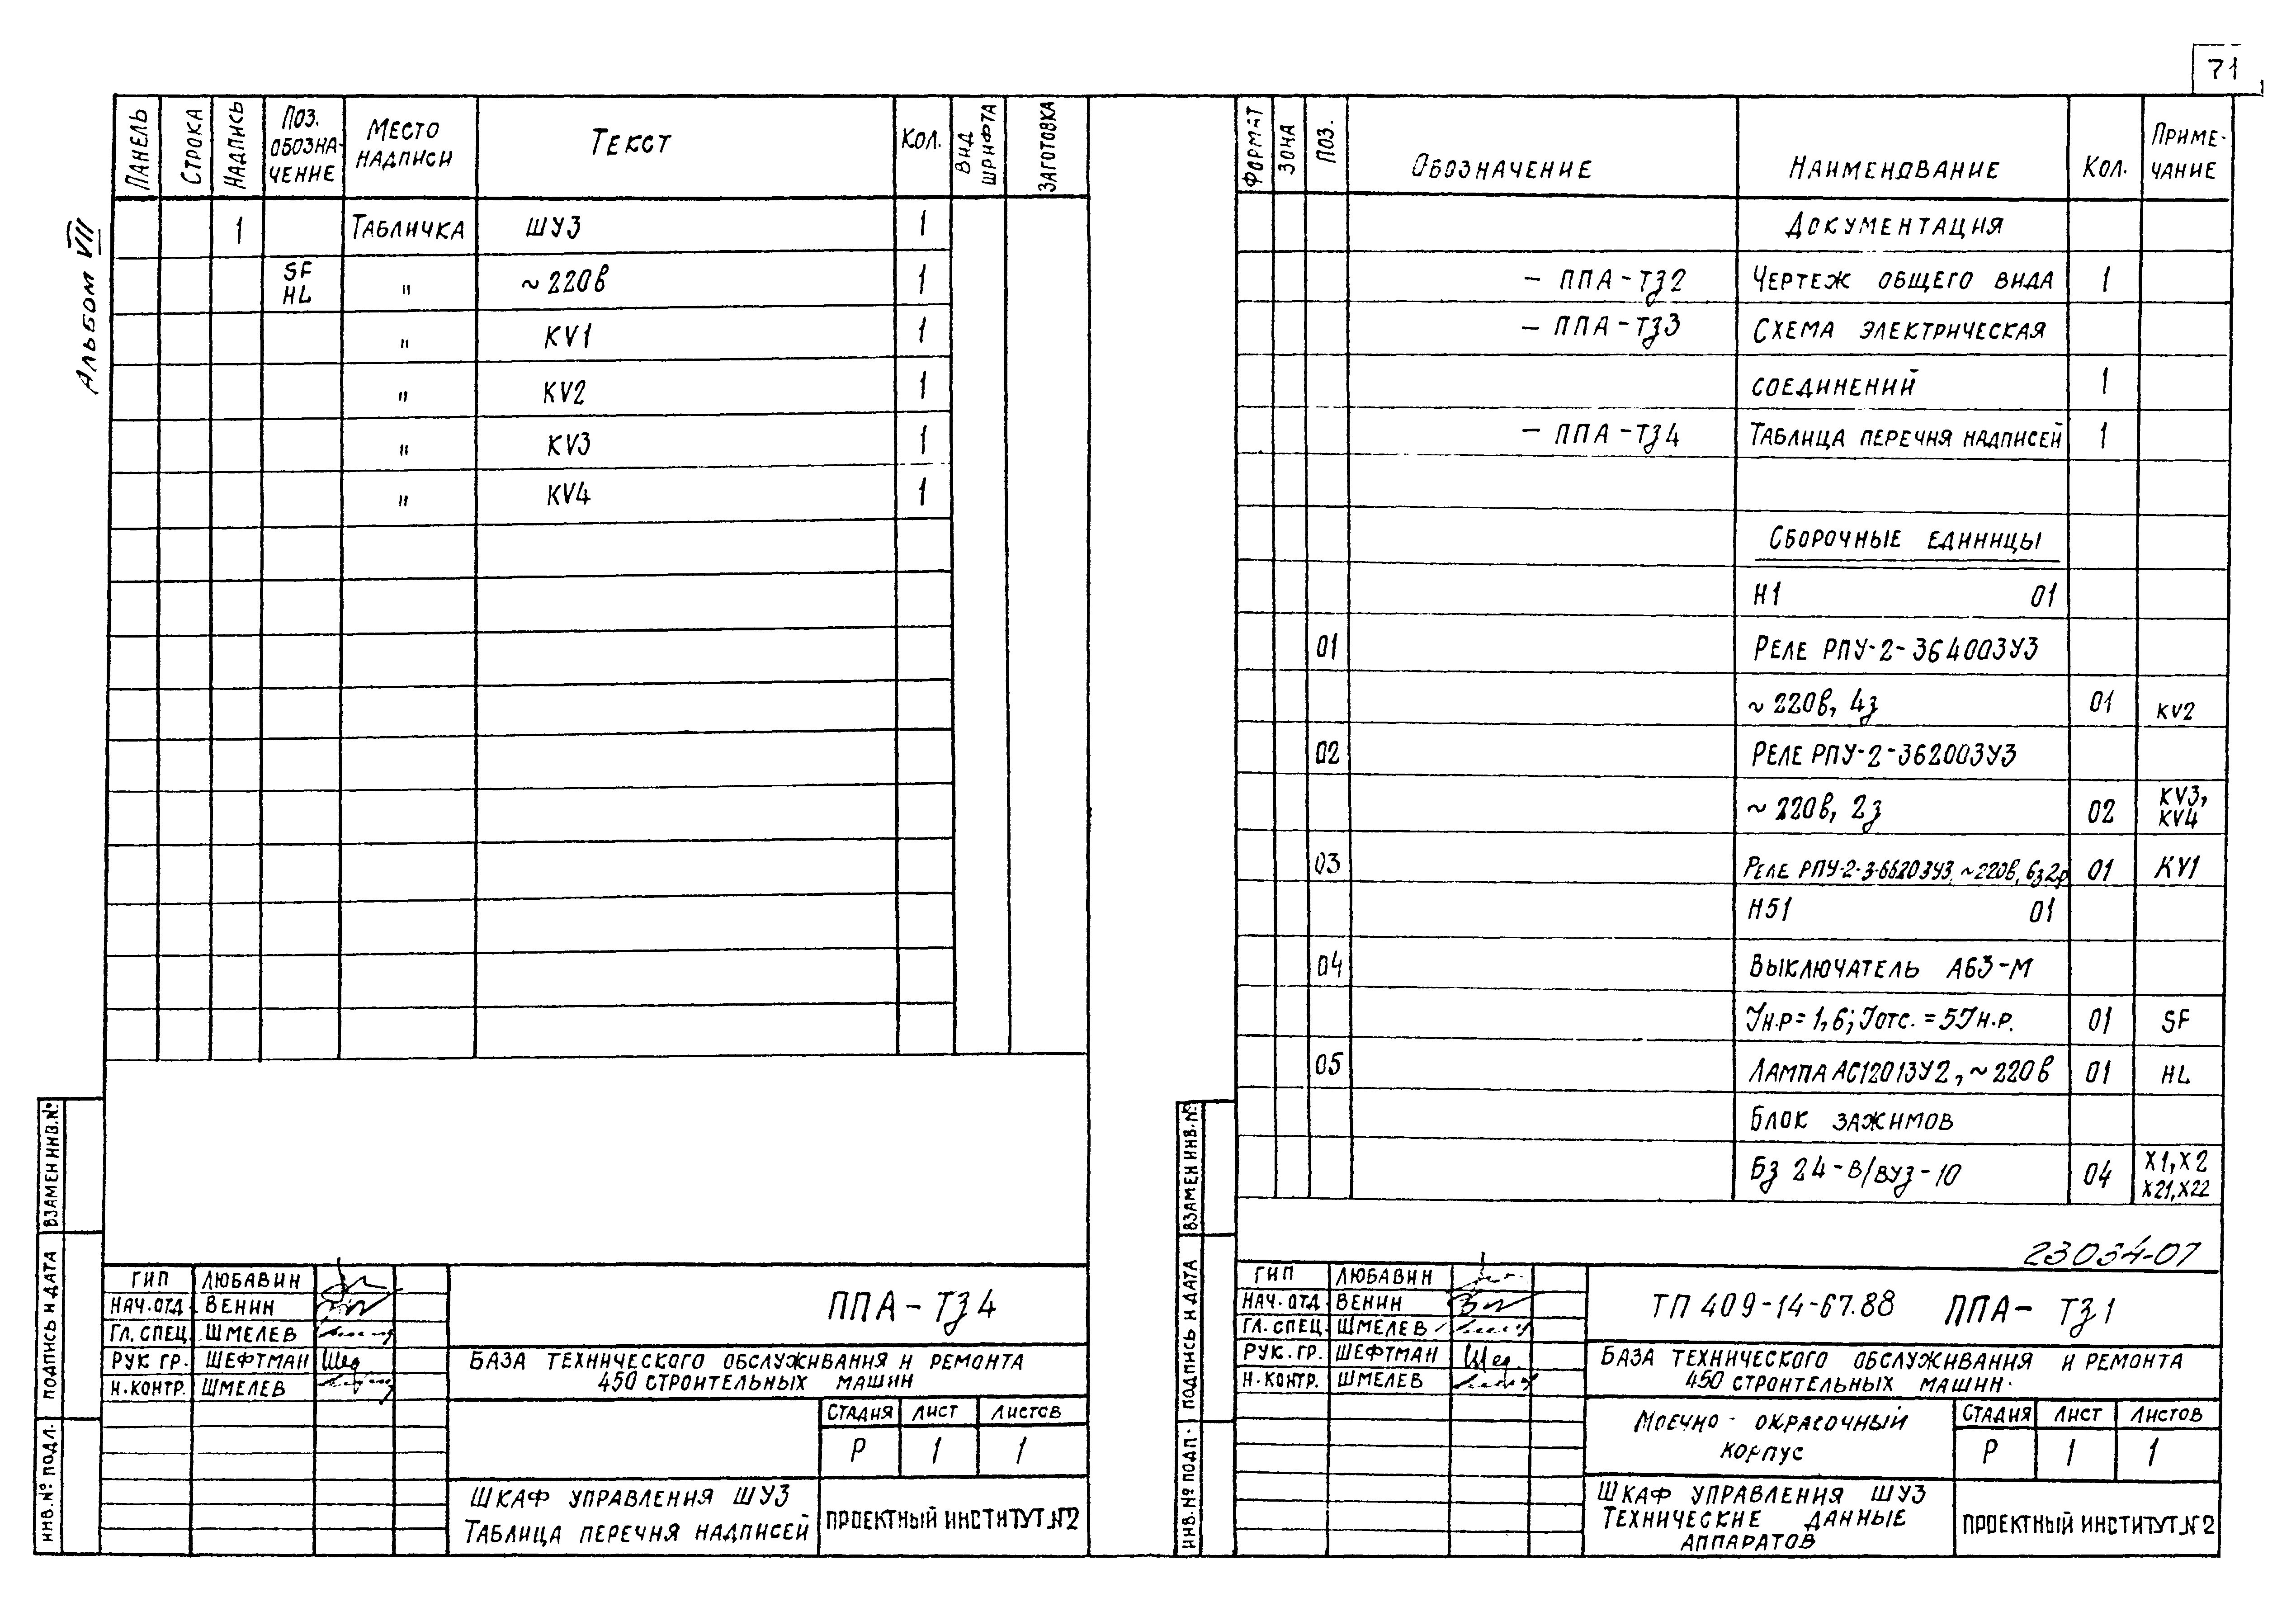 71
Альбом VII
Панель Строка Надпись Поз. обозначение Место надписи Текст Кол. Вид шрифта Заготовка
1 Табличка ШУЗ 1
SF HL " ~220в 1
" KV1 1
" KV2 1
" KV3 1
" KV4 1
Взамен инв.№
Подпись и дата
Инв.№ подл.
ГИП Любавин
Нач.отд. Венин
Гл.спец. Шмелев
Рук.гр. Шефтман
Н.контр. Шмелев
ППА-ТЗ4
База технического обслуживания и ремонта
450 строительных машин
Стадия Лист Листов
Р 1 1
Шкаф управления ШУЗ
Таблица перечня надписей
Проектный институт №2
Формат Зона Поз. Обозначение Наименование Кол. Приме-
чание
Документация
- ППА-ТЗ2 Чертеж общего вида 1
- ППА-ТЗ3 Схема электрическая
соединений 1
- ППА-ТЗ4 Таблица перечня надписей 1
Сборочные единицы
Н1 01
01 Реле РПУ-2-364003У3
~220в, 4з 01 KV2
02 Реле РПУ-2-362003У3
~220в, 2з 02 KV3, KV4
03 Реле РПУ-2-3-66203У3, ~220в, 6з2р 01 KV1
Н51 01
04 Выключатель А63-М
Iн.р=1,6; Iотс.=5Iн.р. 01 SF
05 Лампа АС12013У2, ~220в 01 HL
Блок зажимов
БЗ 24-В/ВУЗ-10 04 Х1, Х2 Х21, Х22
23034-07
Взамен инв.№
Подпись и дата
Инв.№ подл.
ГИП Любавин
Нач.отд. Венин
Гл.спец. Шмелев
Рук.гр. Шефтман
Н.контр. Шмелев
ТП 409-14-67.88 ППА-ТЗ1
База технического обслуживания и ремонта
450 строительных машин.
Моечно-окрасочный
корпус
Стадия Лист Листов
Р 1 1
Шкаф управления ШУЗ
Технические данные
аппаратов
Проектный институт №2